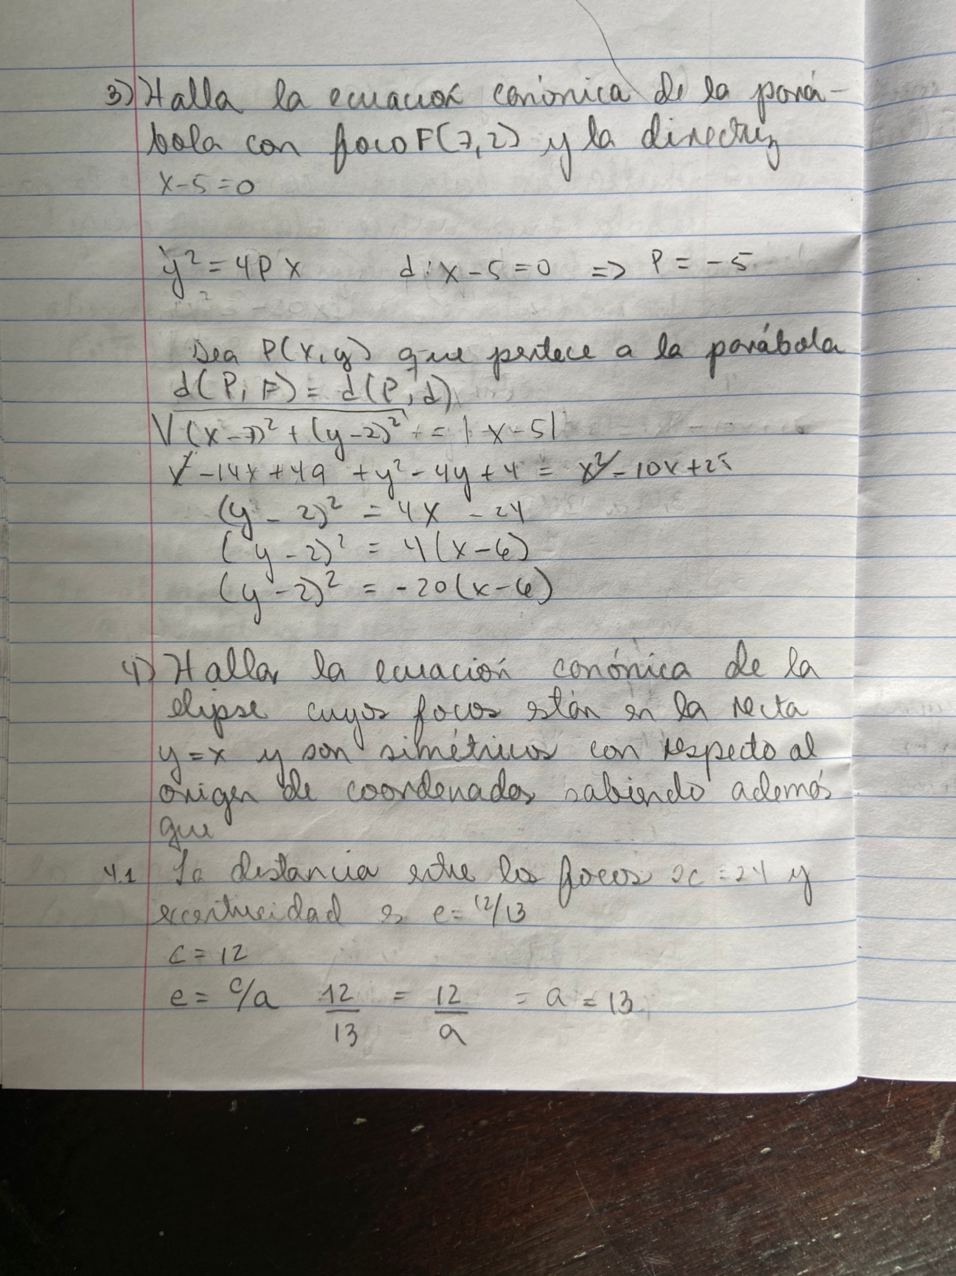 3) Halla la ecuación canónica de la pará-
bola con foco F(7,2) y la directriz
x-5=0
y² = 4Px d: x-5=0 => P = -5
Sea P(x,y) que pertece a la parábola
d(P,F) = d(P,d)
√(x-7)² + (y-2)² = |x-5|
x² -14x+49 +y² -4y+4 = x² -10x+25
(y-2)² = 4x -24
(y-2)² = 4(x-6)
(y-2)² = -20(x-6)
4) Halla la ecuación canónica de la
elipse cuyos focos están en la recta
y=x y son simétricos con respecto al
origen de coordenadas sabiendo además
que
4.1 La distancia entre los focos 2c=24 y
es e=12/13
c=12
e= c/a 12/13 = 12/a = a = 13